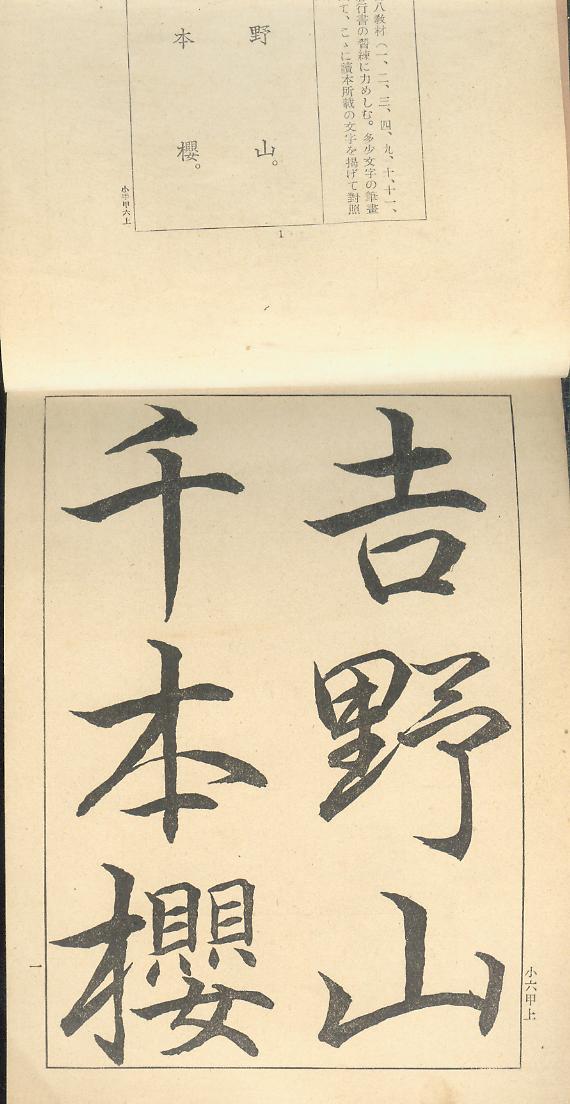 八敎材(一、二、三、四、九、十、十一、
行書の習練に力めしむ。多少文字の筆畫
て、こゝに讀本所載の文字を揭げて對照
野山。
本櫻。
小甲六上
1
吉野山
千本櫻
小六甲上
一